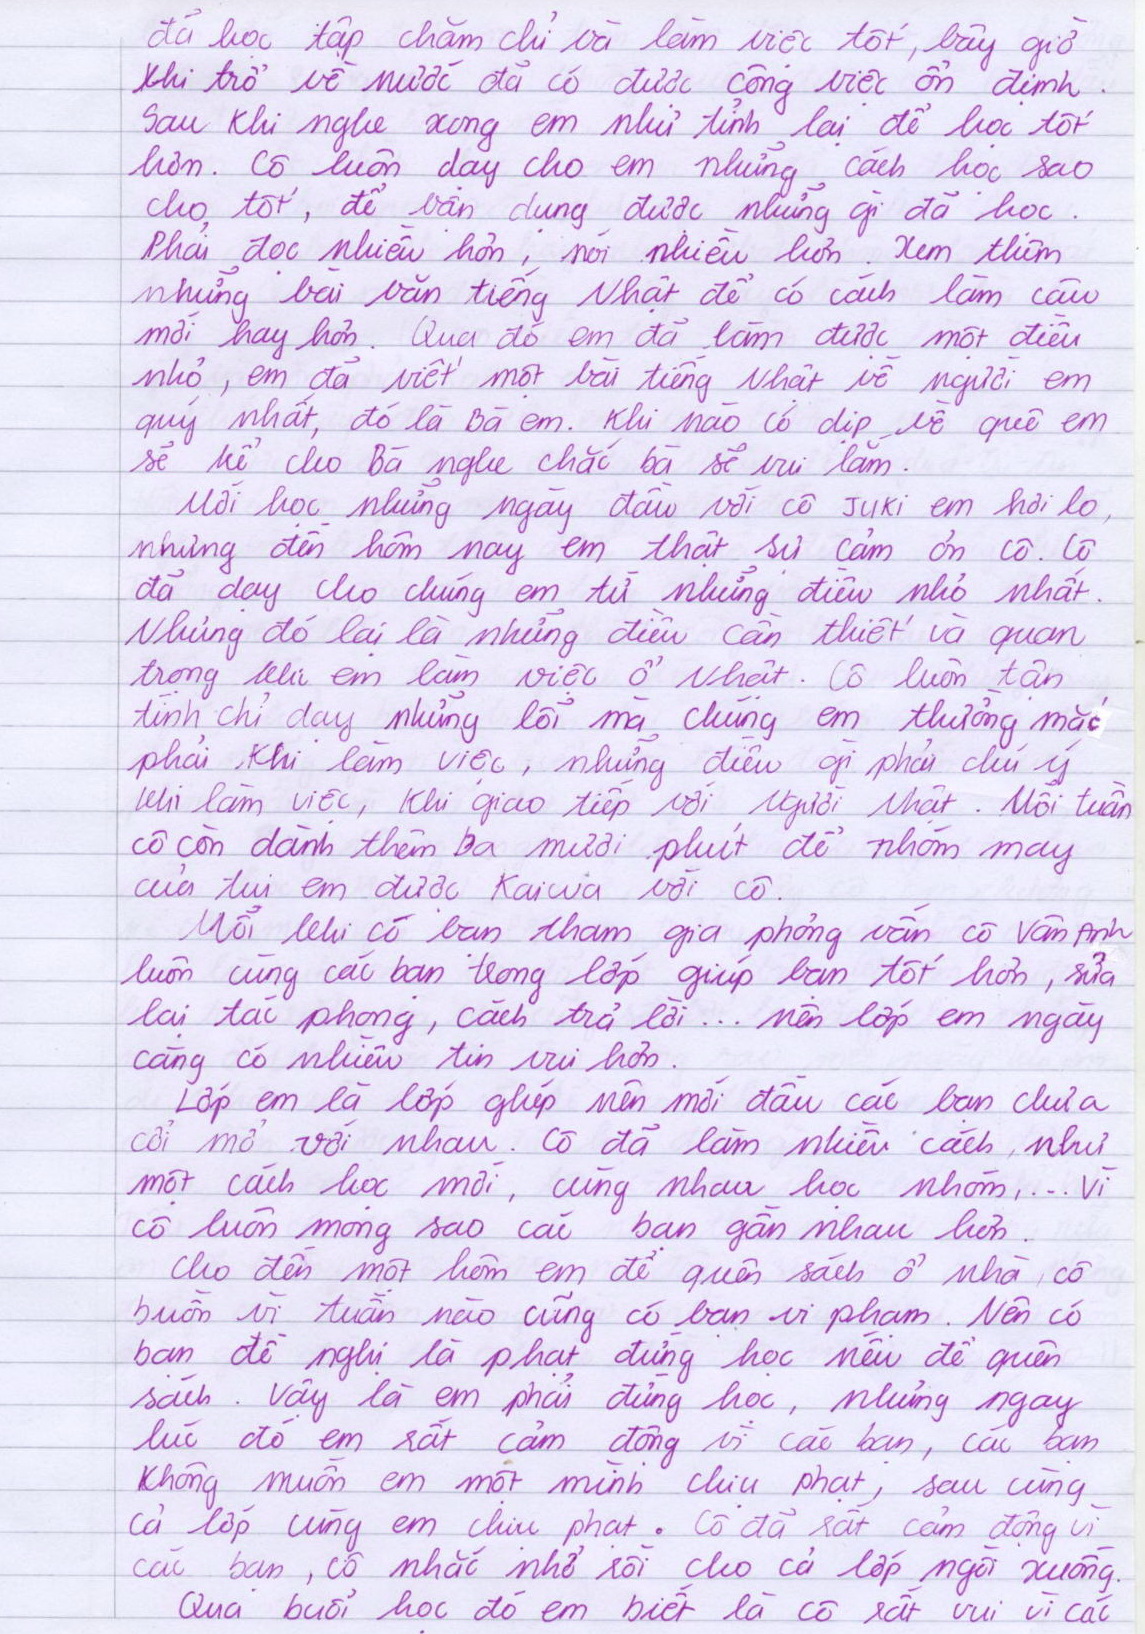 đã học tập chăm chỉ và làm việc tốt, bây giờ
khi trở về nước đã có được công việc ổn định.
Sau khi nghe xong em như tỉnh lại để học tốt
hơn. Cô luôn dạy cho em những cách học sao
cho tốt, để vận dụng được những gì đã học.
Phải đọc nhiều hơn, nói nhiều hơn. Xem thêm
những bài văn tiếng Nhật để có cách làm câu
mới hay hơn. Qua đó em đã làm được một điều
nhỏ, em đã viết một bài tiếng Nhật về người em
quý nhất, đó là Bà em. Khi nào có dịp về quê em
sẽ kể cho Bà nghe chắc bà sẽ vui lắm.
Mới học những ngày đầu với cô JUKI em hơi lo,
nhưng đến hôm nay em thật sự cảm ơn cô. Cô
đã dạy cho chúng em từ những điều nhỏ nhất.
Nhưng đó lại là những điều cần thiết và quan
trọng khi em làm việc ở Nhật. Cô luôn tận
tình chỉ dạy những lỗi mà chúng em thường mắc
phải khi làm việc, những điều gì phải chú ý
khi làm việc, khi giao tiếp với người Nhật. Mỗi tuần
cô còn dành thêm ba mươi phút để nhóm may
của tụi em được Kaiwa với cô.
Mỗi khi có bạn tham gia phỏng vấn cô Vân Anh
luôn cùng các bạn trong lớp giúp bạn tốt hơn, sửa
lại tác phong, cách trả lời... nên lớp em ngày
càng có nhiều tin vui hơn.
Lớp em là lớp ghép nên mới đầu các bạn chưa
cởi mở với nhau. Cô đã làm nhiều cách, như
một cách học mới, cùng nhau học nhóm,... Vì
cô luôn mong sao các bạn gần nhau hơn.
Cho đến một hôm em để quên sách ở nhà, cô
buồn vì tuần nào cũng có bạn vi phạm. Nên có
bạn đề nghị là phạt đứng học nếu để quên
sách. Vậy là em phải đứng học, nhưng ngay
lúc đó em rất cảm động vì các bạn, các bạn
không muốn em một mình chịu phạt, sau cùng
cả lớp cùng em chịu phạt. Cô đã rất cảm động vì
các bạn, cô nhắc nhở rồi cho cả lớp ngồi xuống.
Qua buổi học đó em biết là cô rất vui vì các